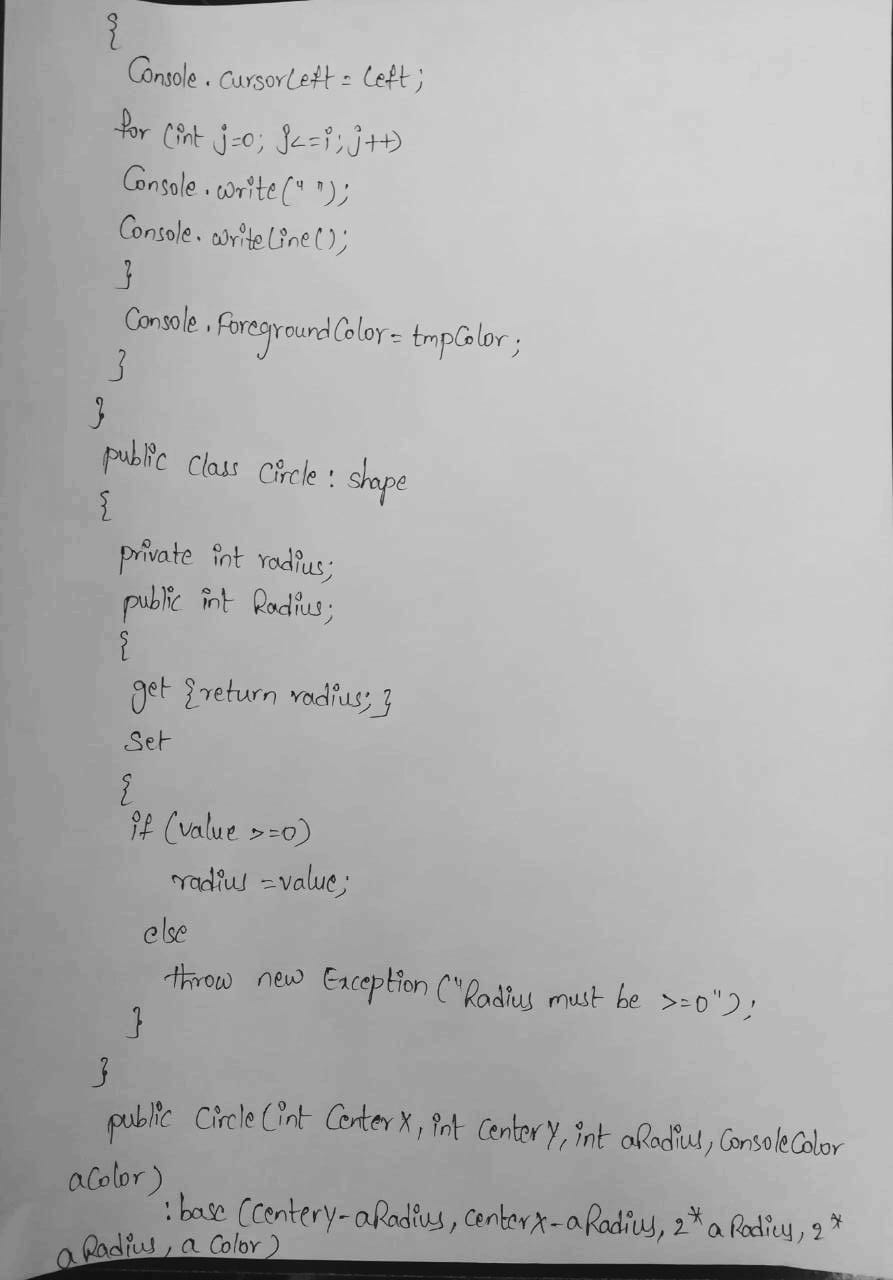 {
Console.CursorLeft = left;
for (int j=0; j<=i; j++)
Console.write(" ");
Console.writeLine();
}
Console.ForegroundColor = tmpColor;
}
}
public class Circle : shape
{
private int radius;
public int Radius;
{
get {return radius;}
Set
{
if (value >=0)
radius =value;
else
throw new Exception ("Radius must be >=0");
}
}
public Circle (int CenterX, int CenterY, int aRadius, ConsoleColor
aColor)
: base (CenterY-aRadius, centerX-aRadius, 2* aRadius, 2*
aRadius, aColor)